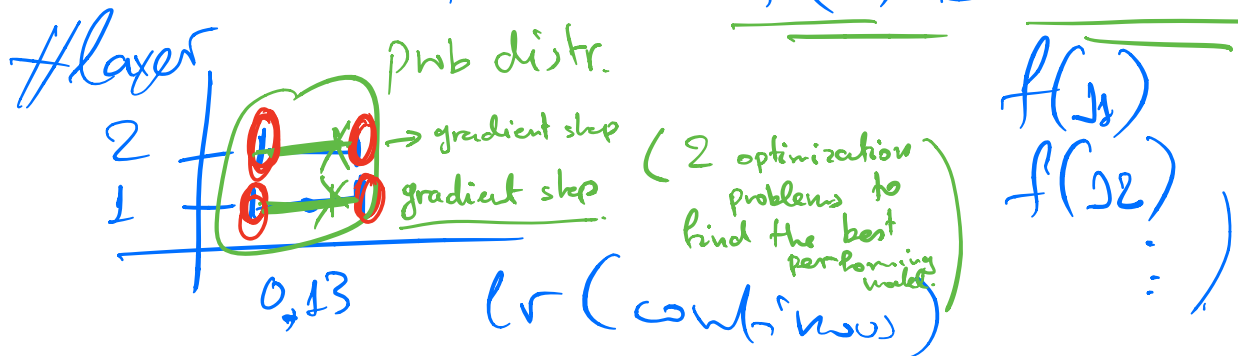 #layer
prob distr.
2
→ gradient step
1
gradient step
(2 optimization
problems to
find the best
performing
model.)
0,13
lr (continuous)
f(λ1)
f(λ2)